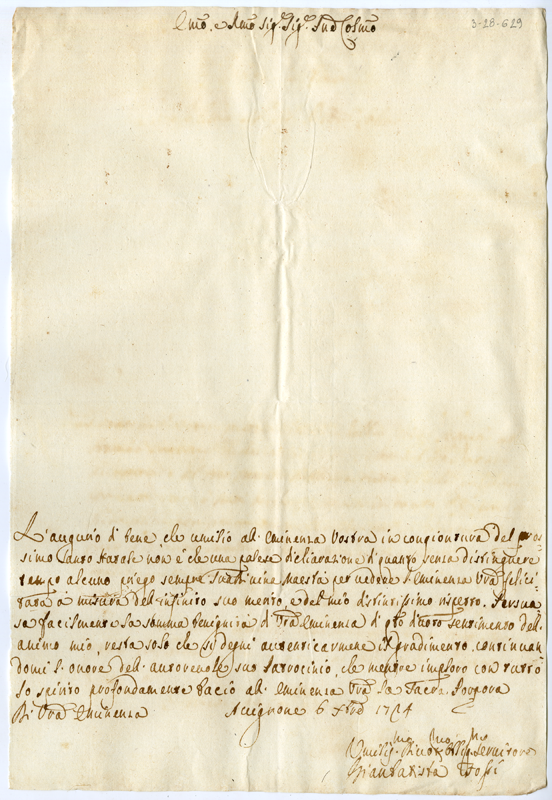 Emo, e Rmo Sig.r Sig.r Prõn Colmo
3-28-629
L'augurio di bene che umilio all' Eminenza Vostra in congiontura del pros-
simo Santo Natale non é che una palese dichiarazione di quanto senza distinguere
tempo alcuno priego sempre Sua Divina Maestà per vedere l'Eminenza Vrã felici-
tata a misura dell' infinito suo merito, e del mio distintissimo rispetto. Persua
sa facilmente la somma benignità di Vrã Eminenza di questo sentimento dell'
animo mio, resta solo che si degni autenticarmene il gradimento, continuan
domi l'onore dell' autorevole suo Patrocinio, che mentre imploro con tutto
lo spirito profondamente bacio all' Eminenza Vrã la Sacra Porpora
Di Vrã Eminenza Avignone 6 1724
Umilis.mo Servitore
Gianbatista